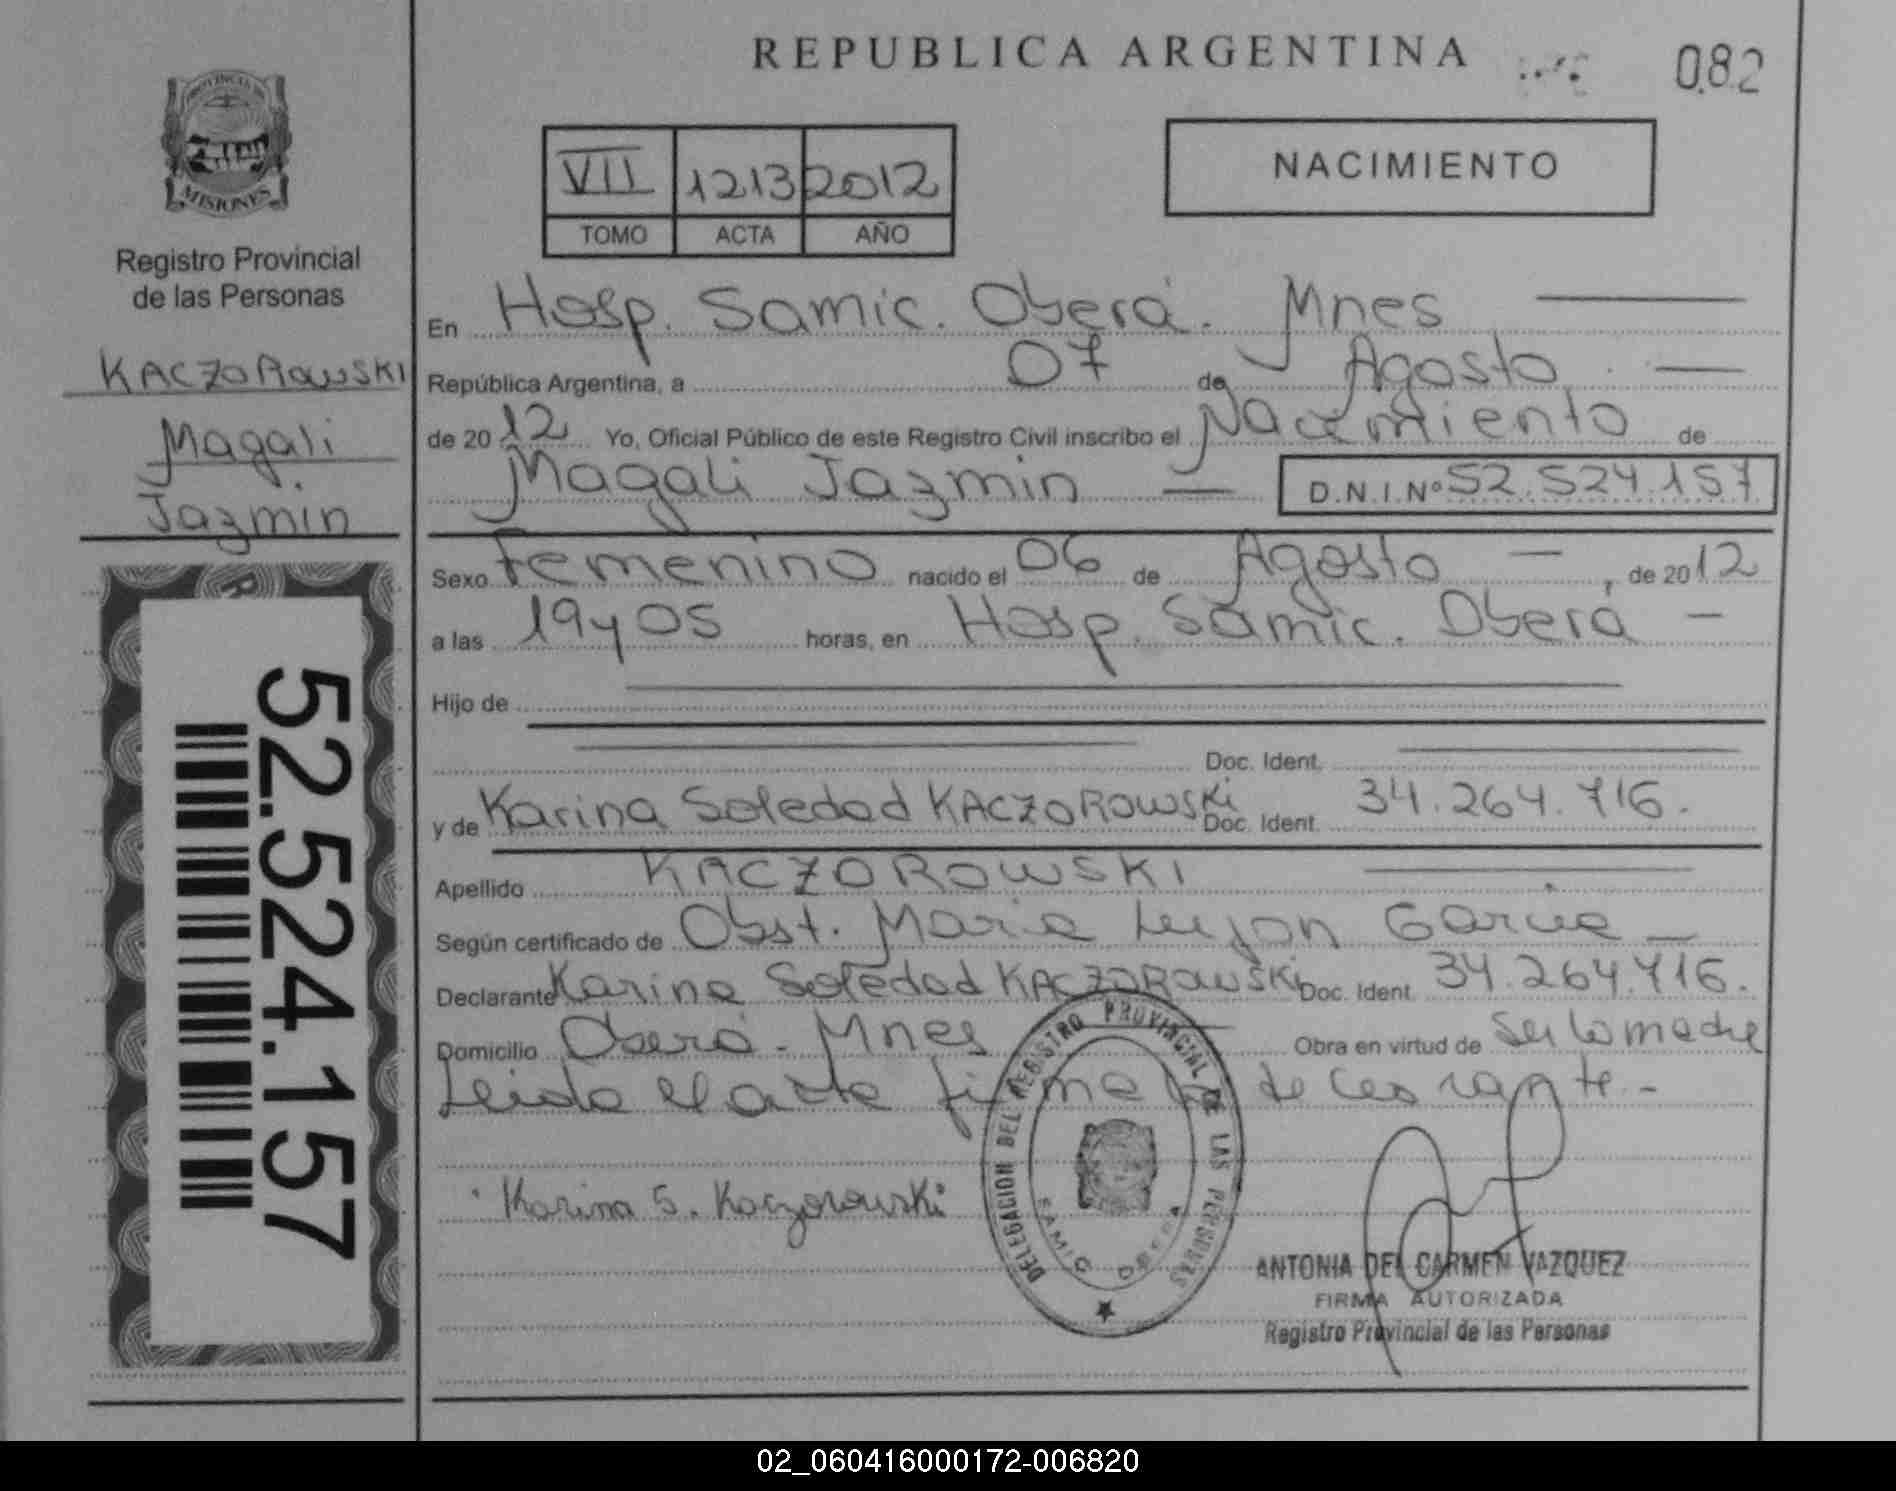 REPUBLICA ARGENTINA
082
PROVINCIA DE
MISIONES
Registro Provincial
de las Personas
KACZOROWSKI
Magali
Jazmin
52.524.157
VII 1213 2012
TOMO ACTA AÑO
NACIMIENTO
En Hosp. Samic. Oberá. Mnes
República Argentina, a 07 de Agosto
de 2012 Yo, Oficial Público de este Registro Civil inscribo el Nacimiento de
Magali Jazmin — D.N.I.Nº 52.524.157
Sexo Femenino nacido el 06 de Agosto — , de 2012
a las 19 y 05 horas, en Hosp. Samic. Oberá —
Hijo de
Doc. Ident.
y de Karina Soledad KACZOROWSKi Doc. Ident. 34.264.716.
Apellido KACZOROWSKI
Según certificado de Obst. Maria Lujan Garcia —
Declarante Karina Soledad KACZOROWSKi Doc. Ident. 34.264.716.
Domicilio Oberá - Mnes Obra en virtud de Ser la madre
Leida el acta firma la declarante.-
Karina S. Kaczorowski
DELEGACION DEL REGISTRO PROVINCIAL DE LAS PERSONAS
SAMIC OBERA
ANTONIA DEL CARMEN VAZQUEZ
FIRMA AUTORIZADA
Registro Provincial de las Personas
02_060416000172-006820